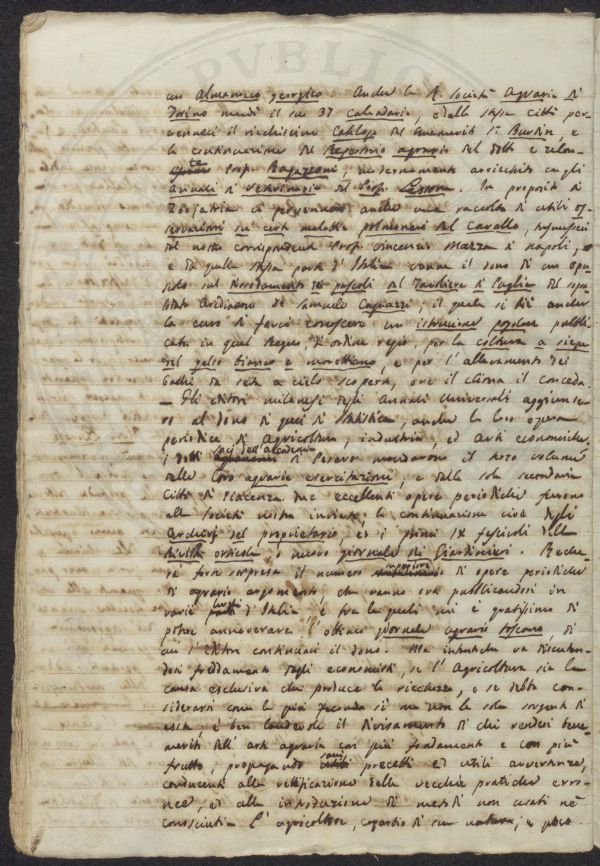 un Almanacco georgico. Anche la R. Società Agraria di
Torino mandò il suo 37 calendario, e dalla stessa Città per-
vennero il ricchissimo Catalogo del Burdin, e
la continuazione del Repertorio agrario del dotto e
Prof. Ragazzoni, arricchito cogli
annali di veterinaria del Prof. Lessona. In proposito di
Zoojatria ci pervennero anche una raccolta di utili os-
servazioni su' certe malattie polmonari del cavallo,
dal nostro corrispondente Prof. Vincenzo Mazza di Napoli,
e da quella stessa parte d'Italia venne il dono di un opu-
scolo sul dissodamento de' pascoli del Tavoliere di Puglia del
Samuele Cagnazzi; il quale si diè anche
la cura di farci conoscere un istruzione popolare pubbli-
cata in quel Regno, d'ordine regio, per la coltura a siepe
del gelso bianco e morettiano, e per l'allevamento dei
bachi da seta a cielo scoperto, ove il clima il conceda.
— Gli editori milanesi degli Annali Universali aggiunse-
ro al dono di quei di Statistica, anche la loro opera
periodica di Agricoltura, industria, ed Arti economiche.
I dotti socj dell'accademia di Pesaro mandarono il terzo volume
delle loro agrarie esercitazioni, e dalla sola secondaria
Città di Piacenza due eccellenti opere periodiche furono
alla Società nostra inviate, la continuazione cioè degli
Archivi del proprietario, ed i primi IX fascicoli della
Rivista orticola, o nuovo giornale dei Giardinieri. Reche-
rà forse sorpresa il numero maggiore di opere periodiche
di agrario argomento, che vanno ora pubblicandosi in
varii luoghi d'Italia e tra le quali mi è gratissimo di
potere annoverare l'ottimo giornale agrario toscano, di
cui l'editore continuaci il dono. Ma intanto che va discuten-
dosi freddamente dagli economisti, se l'Agricoltura sia la
causa esclusiva che produce la ricchezza, o se debba con-
siderarsi come la più feconda sì ma non la sola sorgente di
essa, è ben laudevole il divisamento di chi rendesi bene-
merito dell'arte agraria con più fondamento e con più
frutto, propagando sani precetti ed utili avvertenze,
conducenti alla rettificazione delle vecchie pratiche erro-
nee, ed alla introduzione di metodi non usati nè
conosciuti. L'agricoltore, di sua natura, e poco